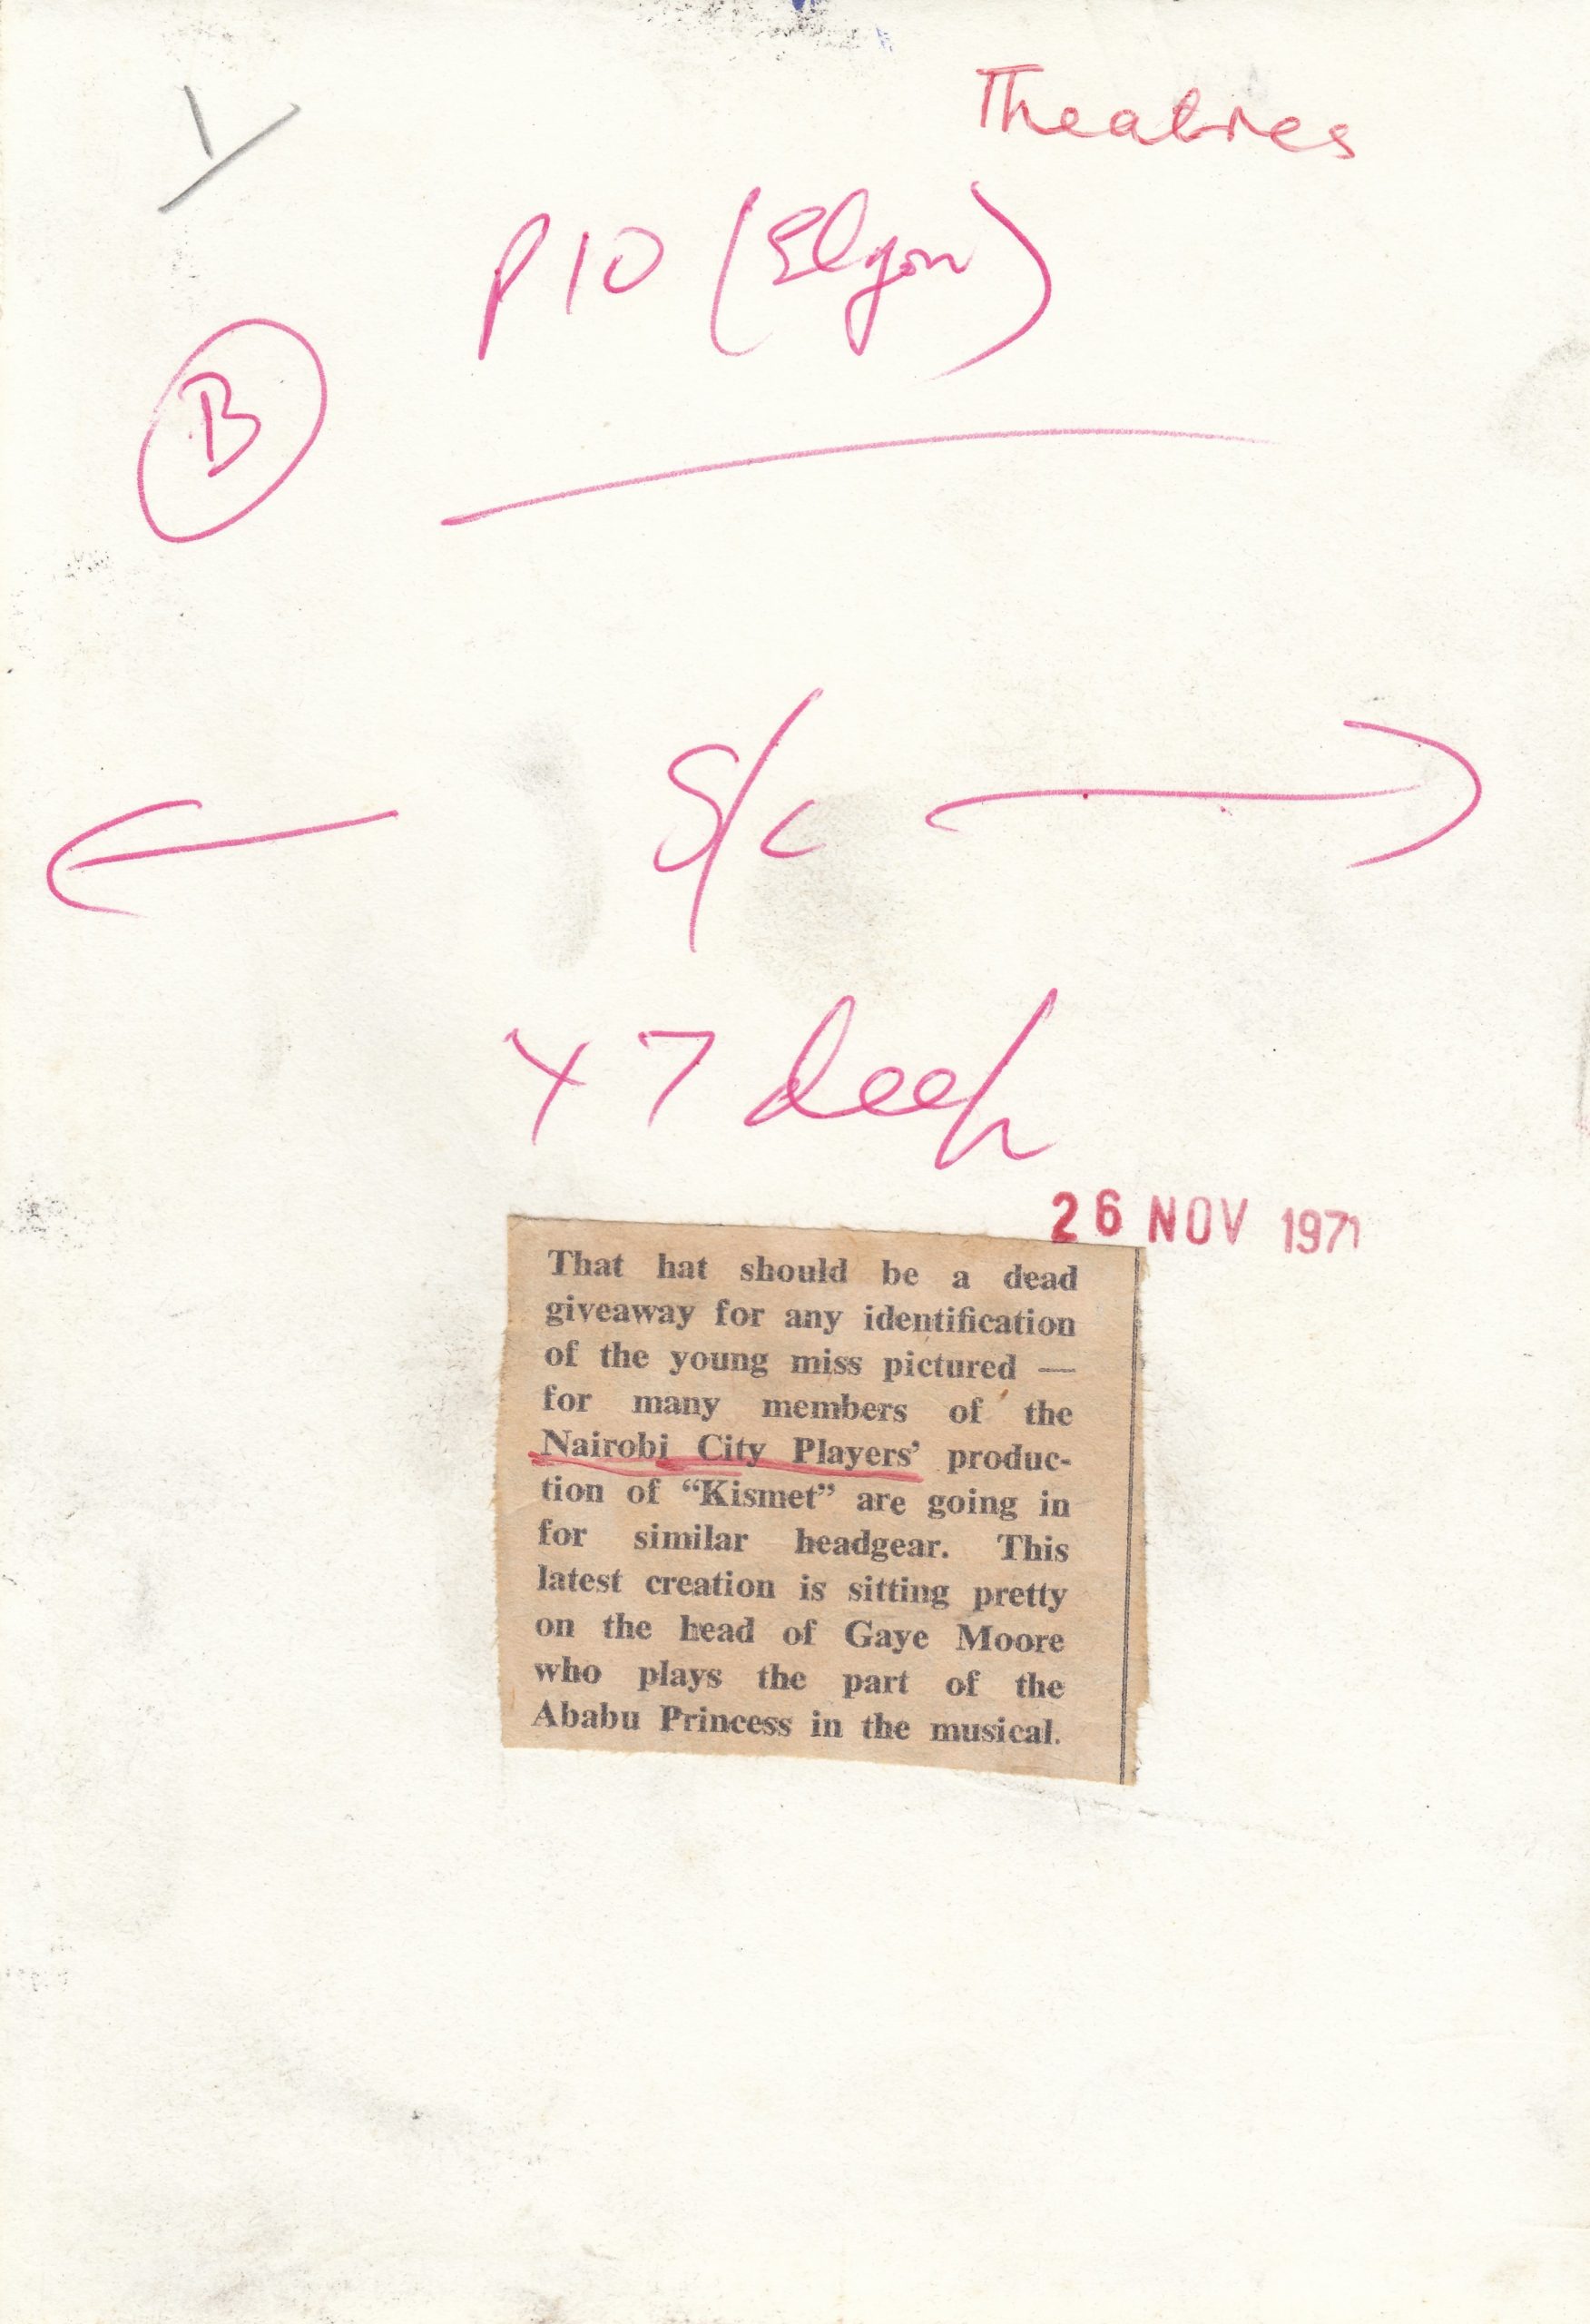 Theatres
P10 (Elgon)
B
S/C
x 7 deep
26 NOV 1971
That hat should be a dead
giveaway for any identification
of the young miss pictured —
for many members of the
Nairobi City Players’ produc-
tion of “Kismet” are going in
for similar headgear. This
latest creation is sitting pretty
on the head of Gaye Moore
who plays the part of the
Ababu Princess in the musical.